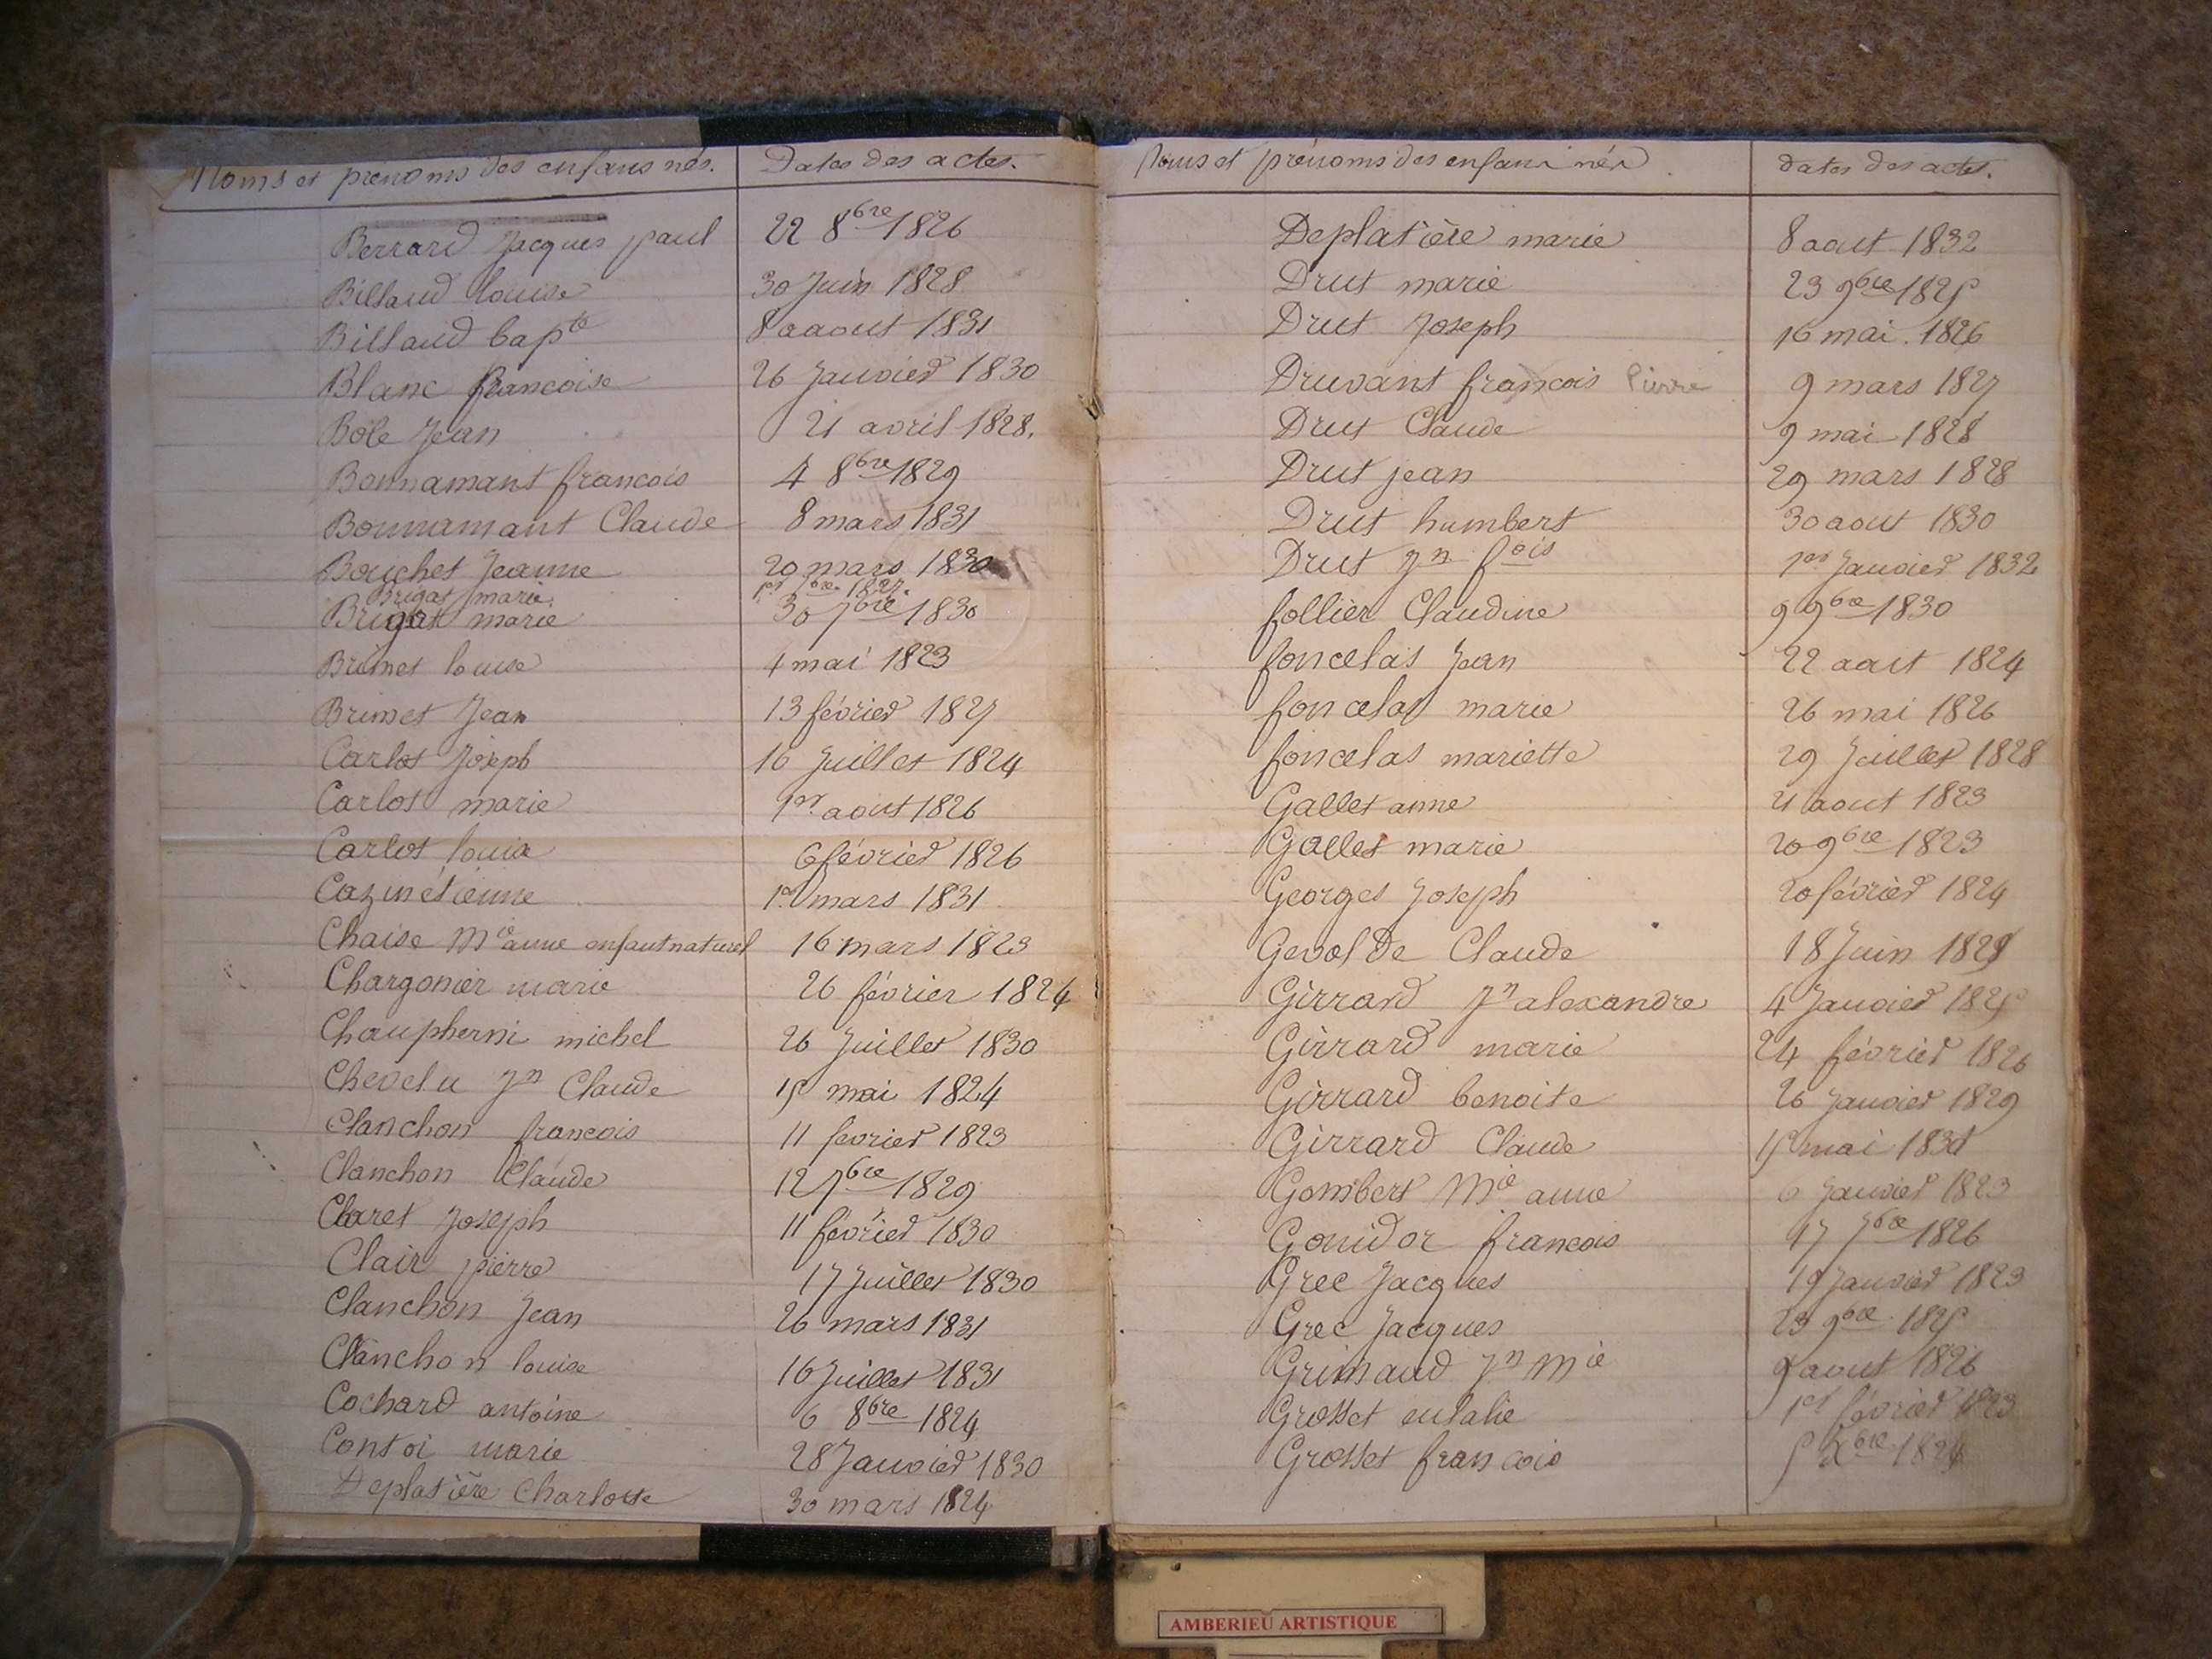 Noms et prénoms des enfans nés. Dates des actes.
Berrard Jacques paul 22 8bre 1826
Billaud louise 30 Juin 1828
Billaud bapte 8 aaout 1831
Blanc francoise 26 Janvier 1830
Bole Jean 21 avril 1828.
Bonnamant francois 4 8bre 1829
Bonnamant Claude 8 mars 1831
Bouchet Jeanne 20 mars 1830
Brigat marie 1er 1827.
Brigat marie 30 7bre 1830
Brunet louise 4 mai 1823
Brunet Jean 13 février 1827
Carlot Joseph 16 Juillet 1824
Carlot marie 1er aout 1826
Carlot louis 6 février 1826
Cazin étienne 1er mars 1831
Chaise Mie anne enfant naturel 16 mars 1823
Chargonier marie 26 février 1824
Chaupherni michel 26 Juillet 1830
Chevelu Jn Claude 15 mai 1824
Clanchon francois 11 fevrier 1823
Clanchon Claude 12 7bre 1829
Claret Joseph 11 février 1830
Clair pierre 17 Juillet 1830
Clanchon Jean 26 mars 1831
Clanchon louise 16 Juillet 1831
Cochard antoine 6 8bre 1824
Contoi marie 28 Janvier 1830
Deplatière Charlotte 30 mars 1824
Noms et prénoms des enfans nés dates des actes.
Deplatière marie 8 aout 1832
Drut marie 23 9bre 1825
Drut Joseph 16 mai. 1826
Druvant francois Pierre 9 mars 1827
Drut Claude 9 mai 1828
Drut jean 29 mars 1828
Drut humbert 30 aout 1830
Drut Jn fois 1er Janvier 1832
follier Claudine 9 9bre 1830
foncelas Jean 22 aout 1824
foncelas marie 26 mai 1826
foncelas mariette 29 Juillet 1828
Gallet anne 21 aout 1823
Gallet marie 20 9bre 1823
Georges Joseph 20 février 1824
Gevolde Claude 18 Juin
Girrard Jn alexandre 4 Janvier 1825
Girrard marie 24 février 1826
Girrard benoite 26 Janvier 1829
Girrard Claude 15 mai
Gombert Mie anne 6 Janvier 1823
Gouidor francois 17 7bre 1826
Grec Jacques 19 Janvier 1823
Grec Jacques 23 9bre 1825
Grimaud Jn Mie 9 aout 1826
Grosset eulalie 1er février 1823
Grosset francois 5 Xbre
AMBERIEU ARTISTIQUE